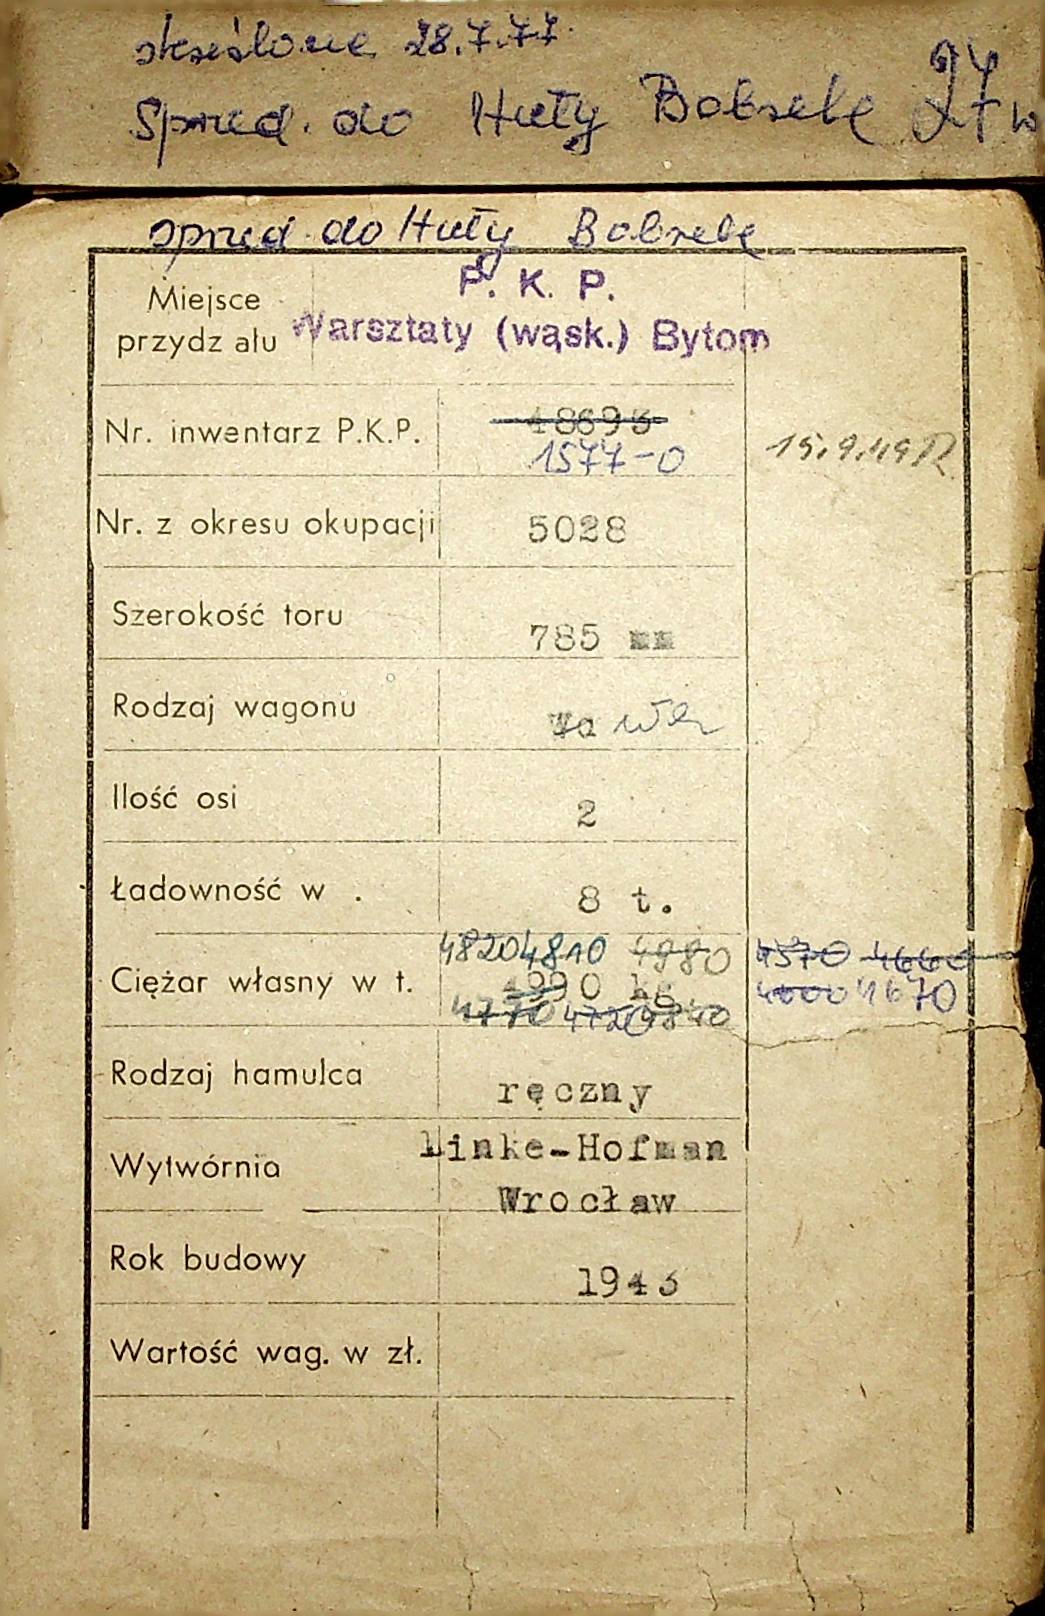 skreślone 28.7.77.
Sprzed. do Huty Bobrek 27 w
sprzed. do Huty Bobrek
P. K. P.
Miejsce
przydz ału Warsztaty (wąsk.) Bytom
18693
Nr. inwentarz P.K.P.
1577-0 15.9.49
Nr. z okresu okupacji 5028
Szerokość toru 785 mm
Rodzaj wagonu
Ilość osi 2
Ładowność w . 8 t.
4820 4810 4980 4570 4660
Ciężar własny w t. 4990 kg 4670
4770 4720 4840
Rodzaj hamulca ręczny
Linke-Hofman
Wytwórnia
Wrocław
Rok budowy 1943
Wartość wag. w zł.